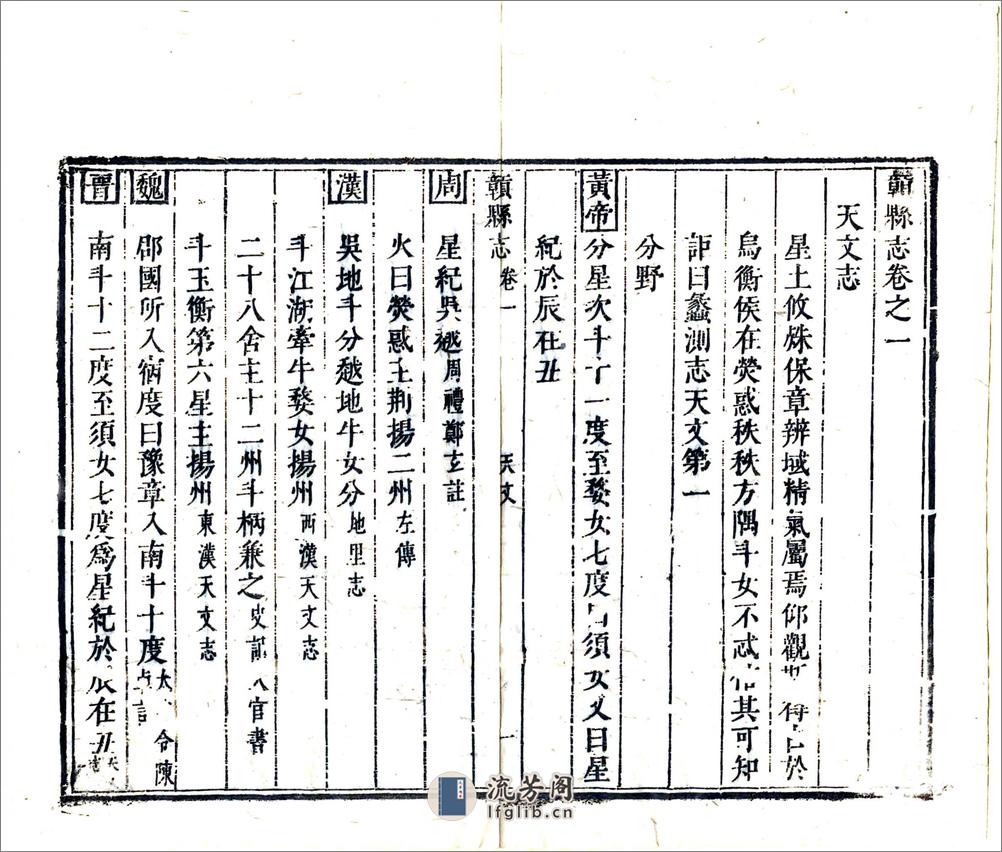 贛縣志卷之一
天文志
星土攸殊保章辨域精氣屬焉仰觀 得 於
烏衡候在熒惑秩秩方隅斗女不忒 其可知
詎曰蠡測志天文第一
分野
黃帝 分星次斗十一度至婺女七度曰須女又曰星
紀於辰在丑
贛縣志 卷一 天文 一
周 星紀吳越周禮鄭玄註
火曰熒惑主荆揚二州左傳
漢 吳地斗分越地牛女分地里志
斗江湖牽牛婺女揚州西漢天文志
二十八舍主十二州斗柄兼之史記 官書
斗玉衡第六星主揚州東漢天文志
魏 郡國所入宿度曰豫章入南斗十度太 令陳
晋 南斗十二度至須女七度爲星紀於辰在丑
流芳阁
lfglib.cn